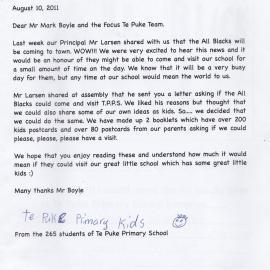 August 10, 2011
Dear Mr Mark Boyle and the Focus Te Puke Team.
Last week our Principal Mr Larsen shared with us that the All Blacks
will be coming to town. WOW!!! We were very excited to hear this news and it
would be an honour if they might be able to come and visit our school for
a small amount of time on the day. We know that it will be a very busy
day for them, but any time at our school would mean the world to us.
Mr Larsen shared at assembly that he sent you a letter asking if the All
Blacks could come and visit T.P.P.S. We liked his reasons but thought that
we could also share some of our own ideas as kids. So..... we decided that
we could do the same. We have made up 2 booklets which have over 200
kids postcards and over 80 postcards from our parents asking if we could
please, please, please have a visit.
We hope that you enjoy reading these and understand how much it would
mean if they could visit our great little school which has some great little
kids :)
Many thanks Mr Boyle
Te Puke Primary Kids
From the 265 students of Te Puke Primary School